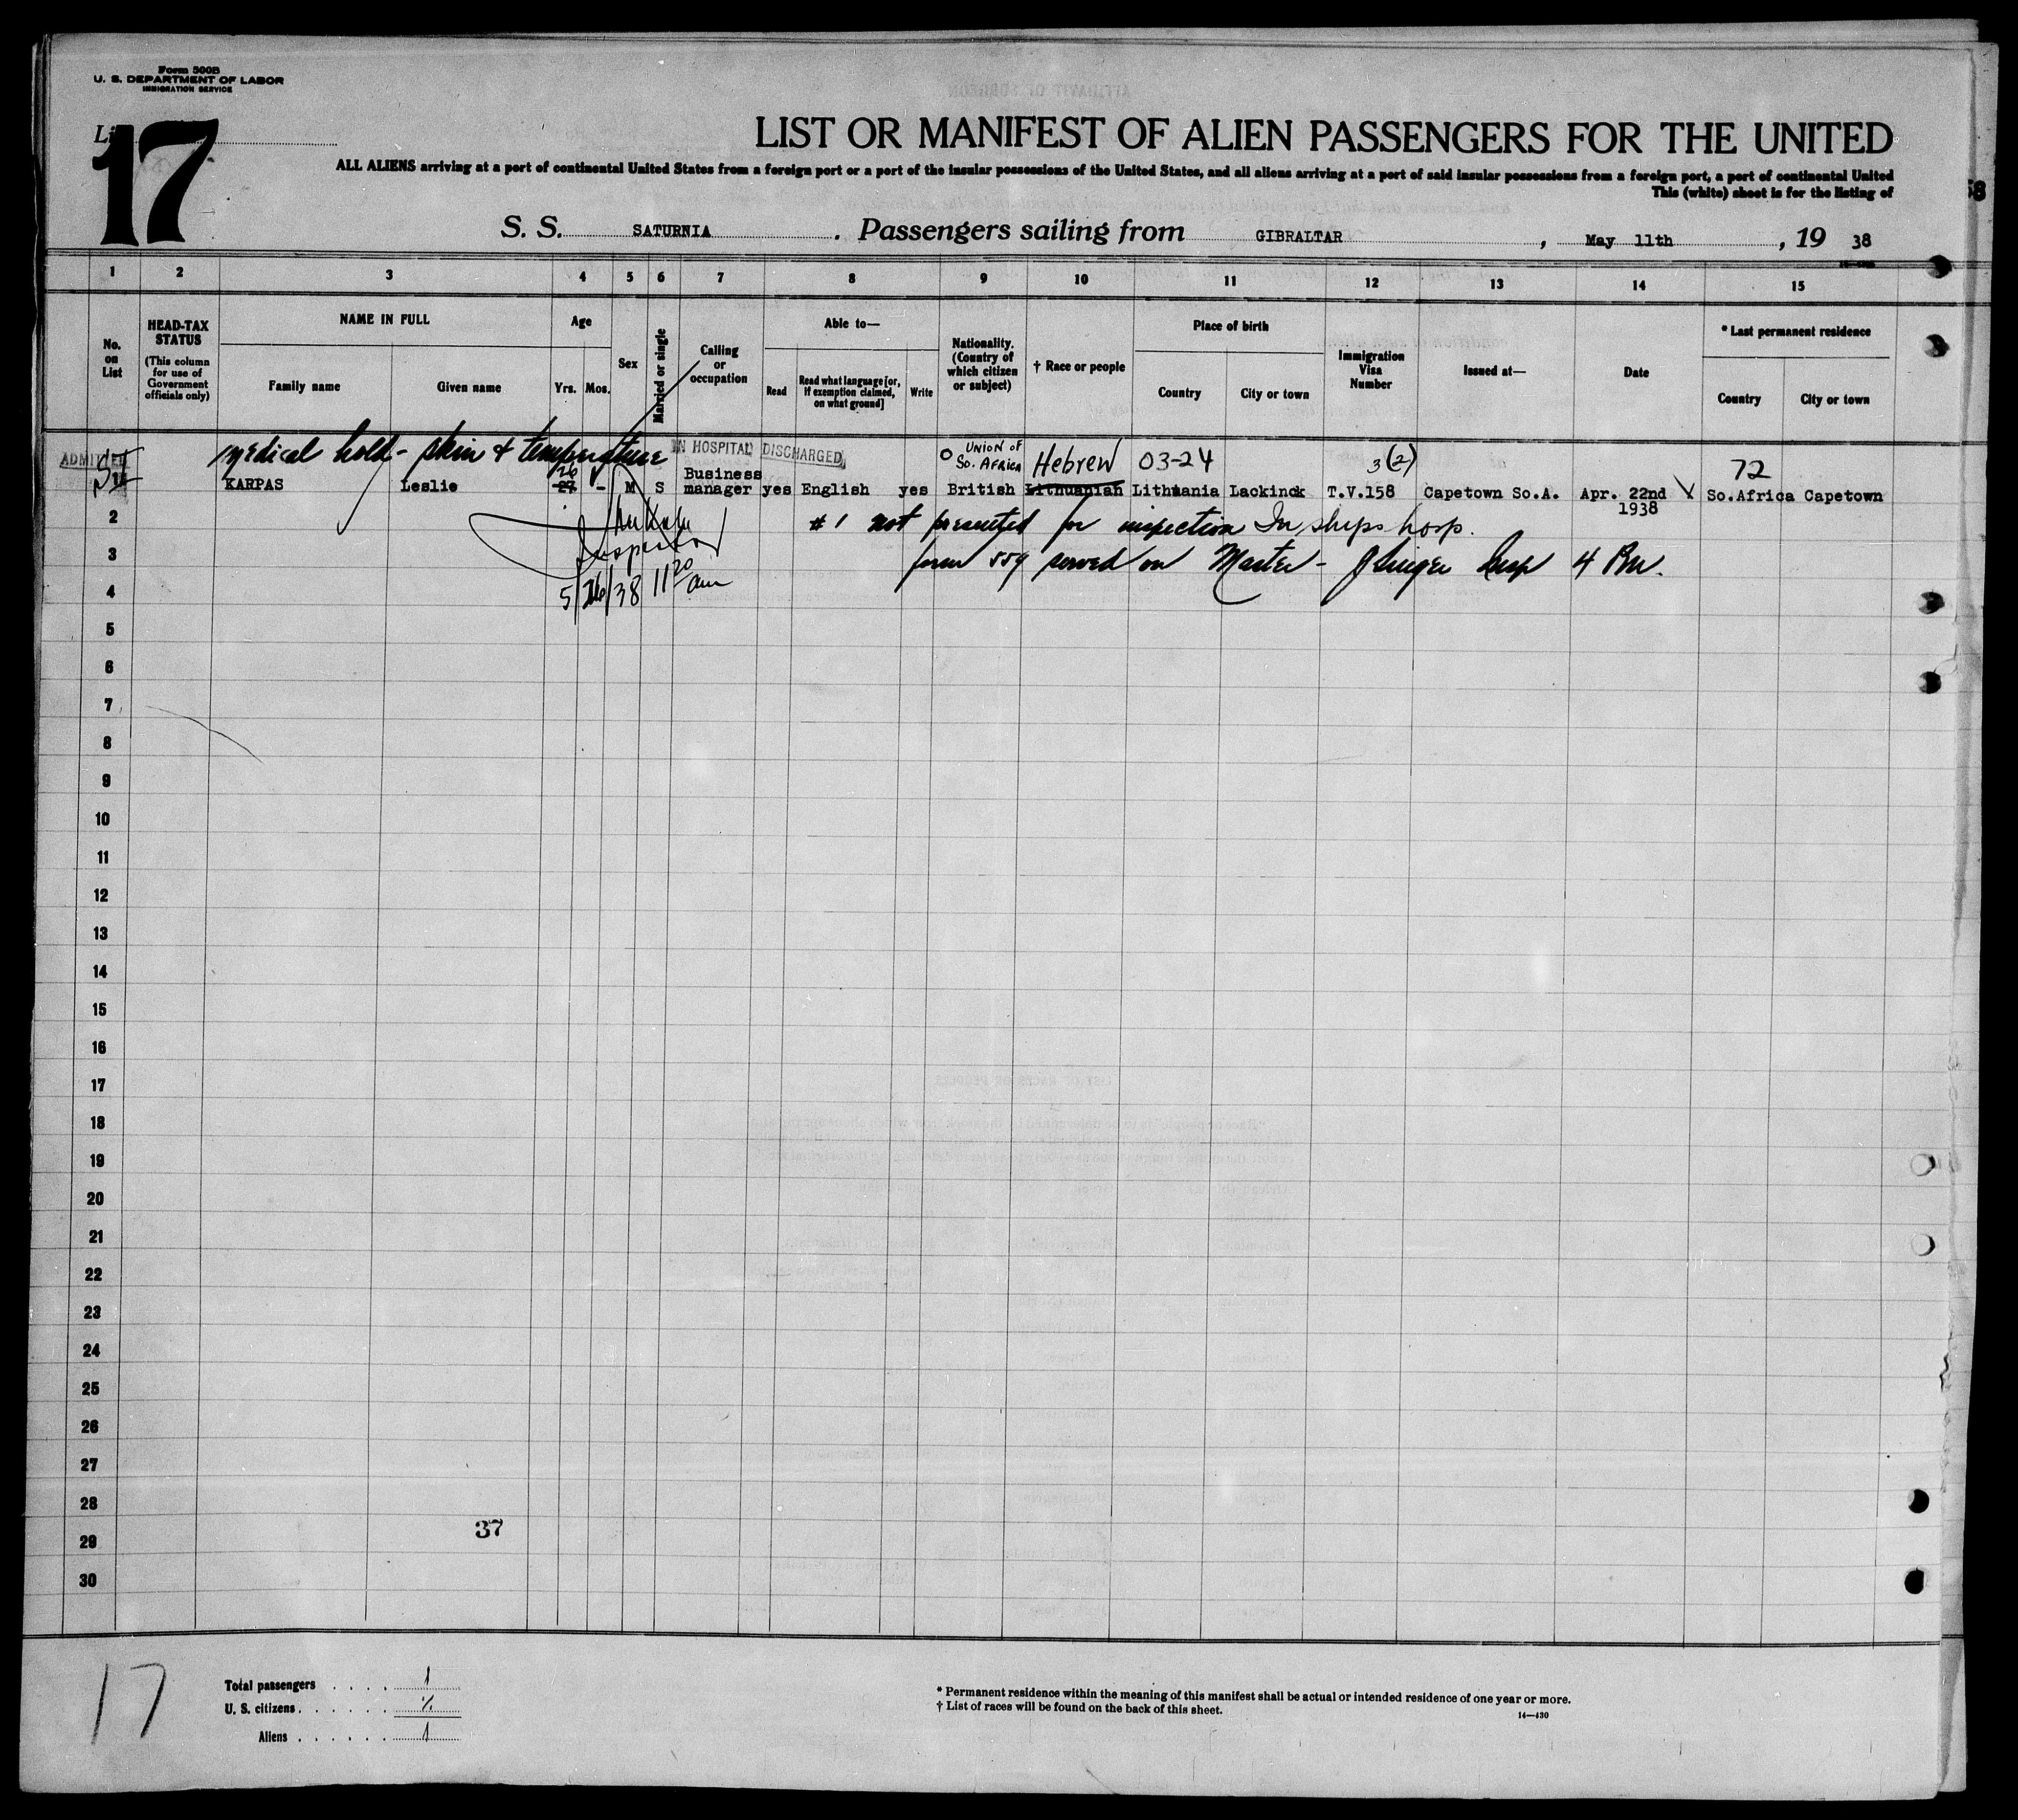 Form 500B
U. S. DEPARTMENT OF LABOR
IMMIGRATION SERVICE
17
LIST OR MANIFEST OF ALIEN PASSENGERS FOR THE UNITED
ALL ALIENS arriving at a port of continental United States from a foreign port or a port of the insular possessions of the United States, and all aliens arriving at a port of said insular possessions from a foreign port, a port of continental United
This (white) sheet is for the listing of
S. S. SATURNIA. Passengers sailing from GIBRALTAR, May 11th, 19 38
1 2 3 4 5 6 7 8 9 10 11 12 13 14 15
No. on List
HEAD-TAX STATUS
(This column for use of Government officials only)
NAME IN FULL
Family name Given name
Age
Yrs. Mos.
Sex
Married or single
Calling or occupation
Able to—
Read Read what language [or, if exemption claimed, on what ground] Write
Nationality. (Country of which citizen or subject)
† Race or people
Place of birth
Country City or town
Immigration Visa Number
Issued at—
Date
* Last permanent residence
Country City or town
medical hold - skin & temperature IN HOSPITAL DISCHARGED UNION OF So. AFRICA Hebrew 03-24 3(2) 72
ADMITTED
KARPAS Leslie 26 27 - M S Business manager yes English yes British Lithuanian Lithuania Lackinck T.V.158 Capetown So.A. Apr. 22nd 1938 So.Africa Capetown
2 #1 not presented for inspection In ships hosp.
Inspector
3 form 559 served on Master - Insp 4 Pm.
4 5/26/38 11 20 am
5
6
7
8
9
10
11
12
13
14
15
16
17
18
19
20
21
22
23
24
25
26
27
28
37
29
30
17
Total passengers . . . . 1
U. S. citizens . . . . . .
Aliens . . . . . . 1
* Permanent residence within the meaning of this manifest shall be actual or intended residence of one year or more.
† List of races will be found on the back of this sheet.
14—430